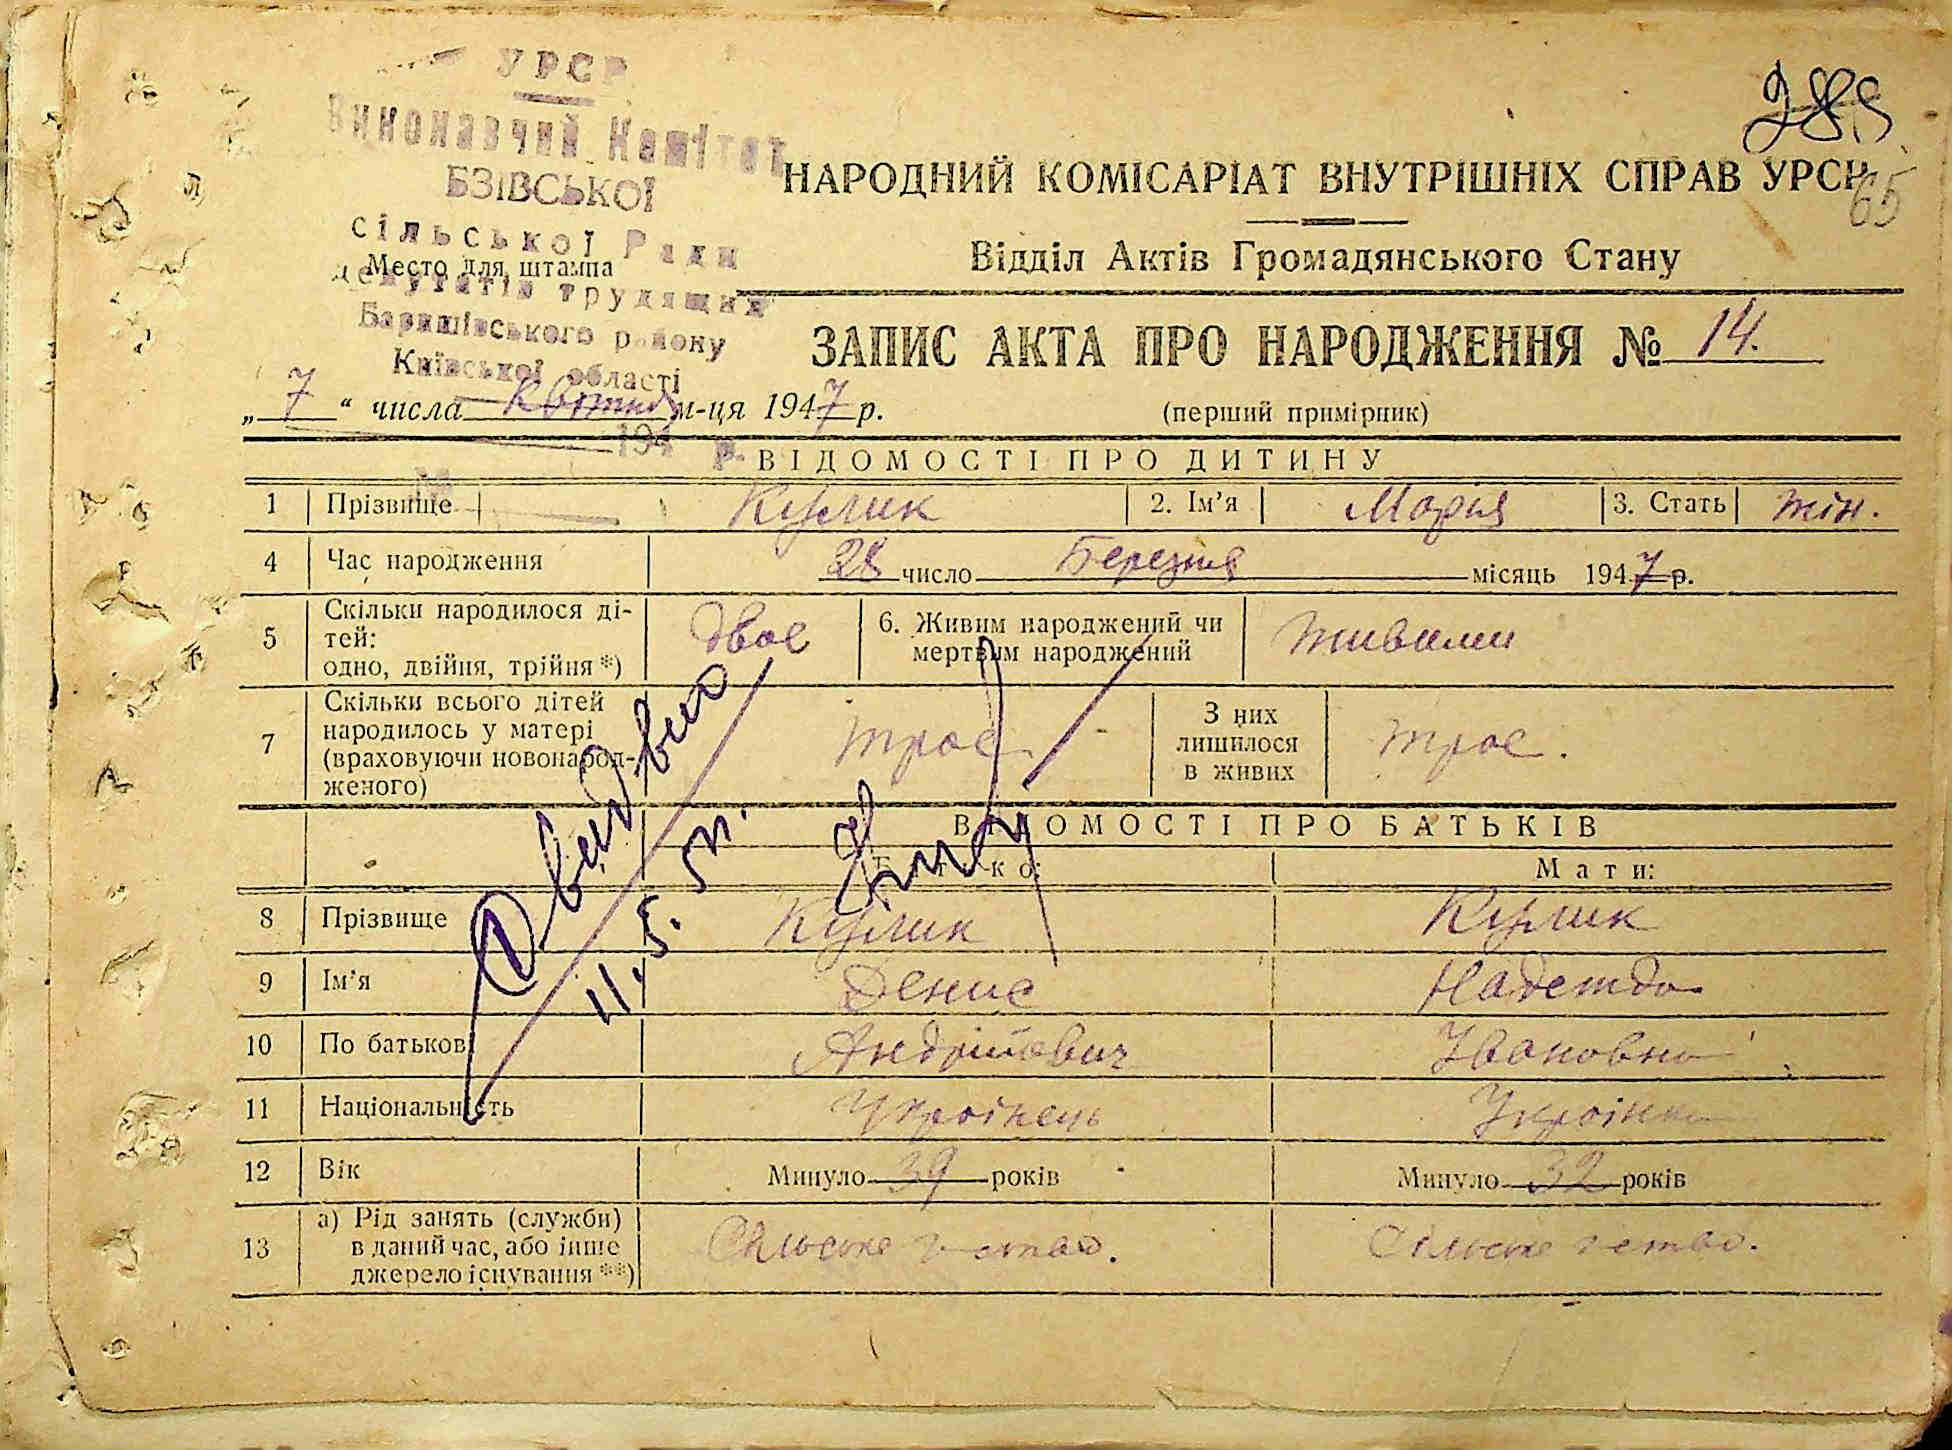 УРСР
Виконавчий Комітет
БЗІВСЬКОЇ
сільської Ради
депутатів трудящих
Баришівського району
Київської області
194 р.
№
Место для штампа
285
65
НАРОДНИЙ КОМІСАРІАТ ВНУТРІШНІХ СПРАВ УРСР
Відділ Актів Громадянського Стану
ЗАПИС АКТА ПРО НАРОДЖЕННЯ № 14.
„ 7 “ числа квітня м-ця 1947 р. (перший примірник)
ВІДОМОСТІ ПРО ДИТИНУ
1 Прізвище Кулик 2. Ім’я Марія 3. Стать жін.
4 Час народження 28 число Березня місяць 1947 р.
5 Скільки народилося дітей: одно, двійня, трійня*) двоє 6. Живим народжений чи мертвим народжений живими
7 Скільки всього дітей народилось у матері (враховуючи новонародженого) троє З них лишилося в живих троє.
ВІДОМОСТІ ПРО БАТЬКІВ
Батько: Мати:
8 Прізвище Кулик Кулик
9 Ім’я Денис Надежда
10 По батькові Андрійович Івановна
11 Національність Українець Українка
12 Вік Минуло 39 років Минуло 32 років
13 а) Рід занять (служби) в даний час, або інше джерело існування**) Сільське г-ство. Сільське г-ство.